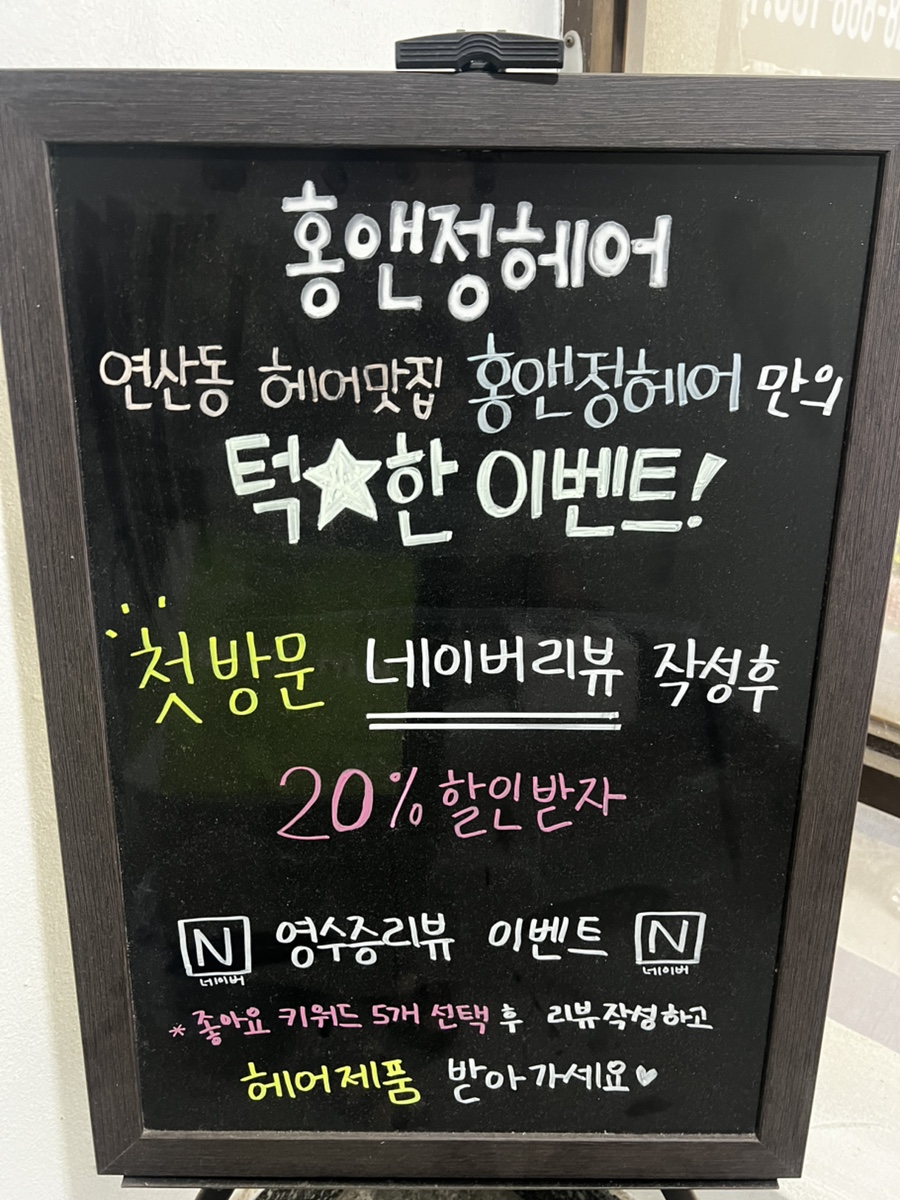 홍앤정헤어
연산동 헤어맛집 홍앤정헤어 만의
턱★한 이벤트!
첫방문 네이버리뷰 작성후
20% 할인받자
N 네이버 영수증리뷰 이벤트 N 네이버
* 좋아요 키워드 5개 선택 후 리뷰작성하고
헤어제품 받아가세요♥